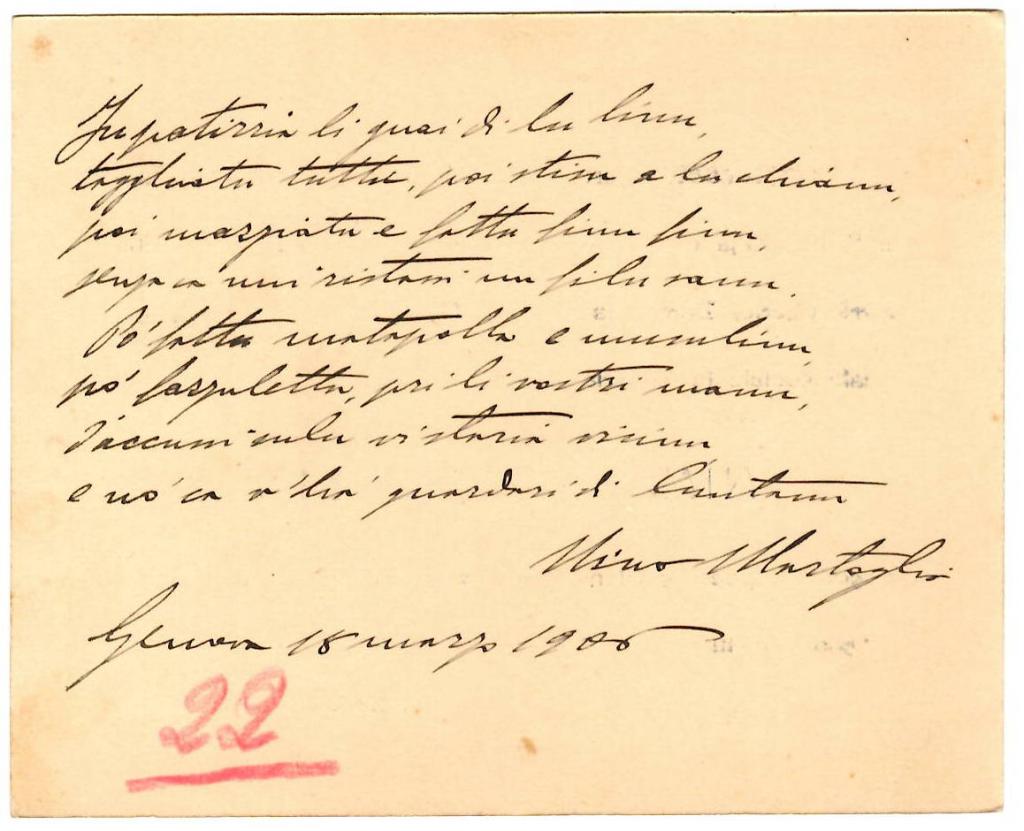 Ju patirria li guai di lu linu,
tagghiatu tuttu, poi stisu a lu chianu,
poi maszpiatu e fattu finu finu,
senza ca mi ristassi un filu sanu.
Pò fattu matapolla e musulinu,
pò fazzulettu, pri li vostri manu,
d'accussì sulu vi staria vicinu
e nò ca v'hê guardari di luntanu
Nino Martoglio
Genova 18 marzo 1906
22